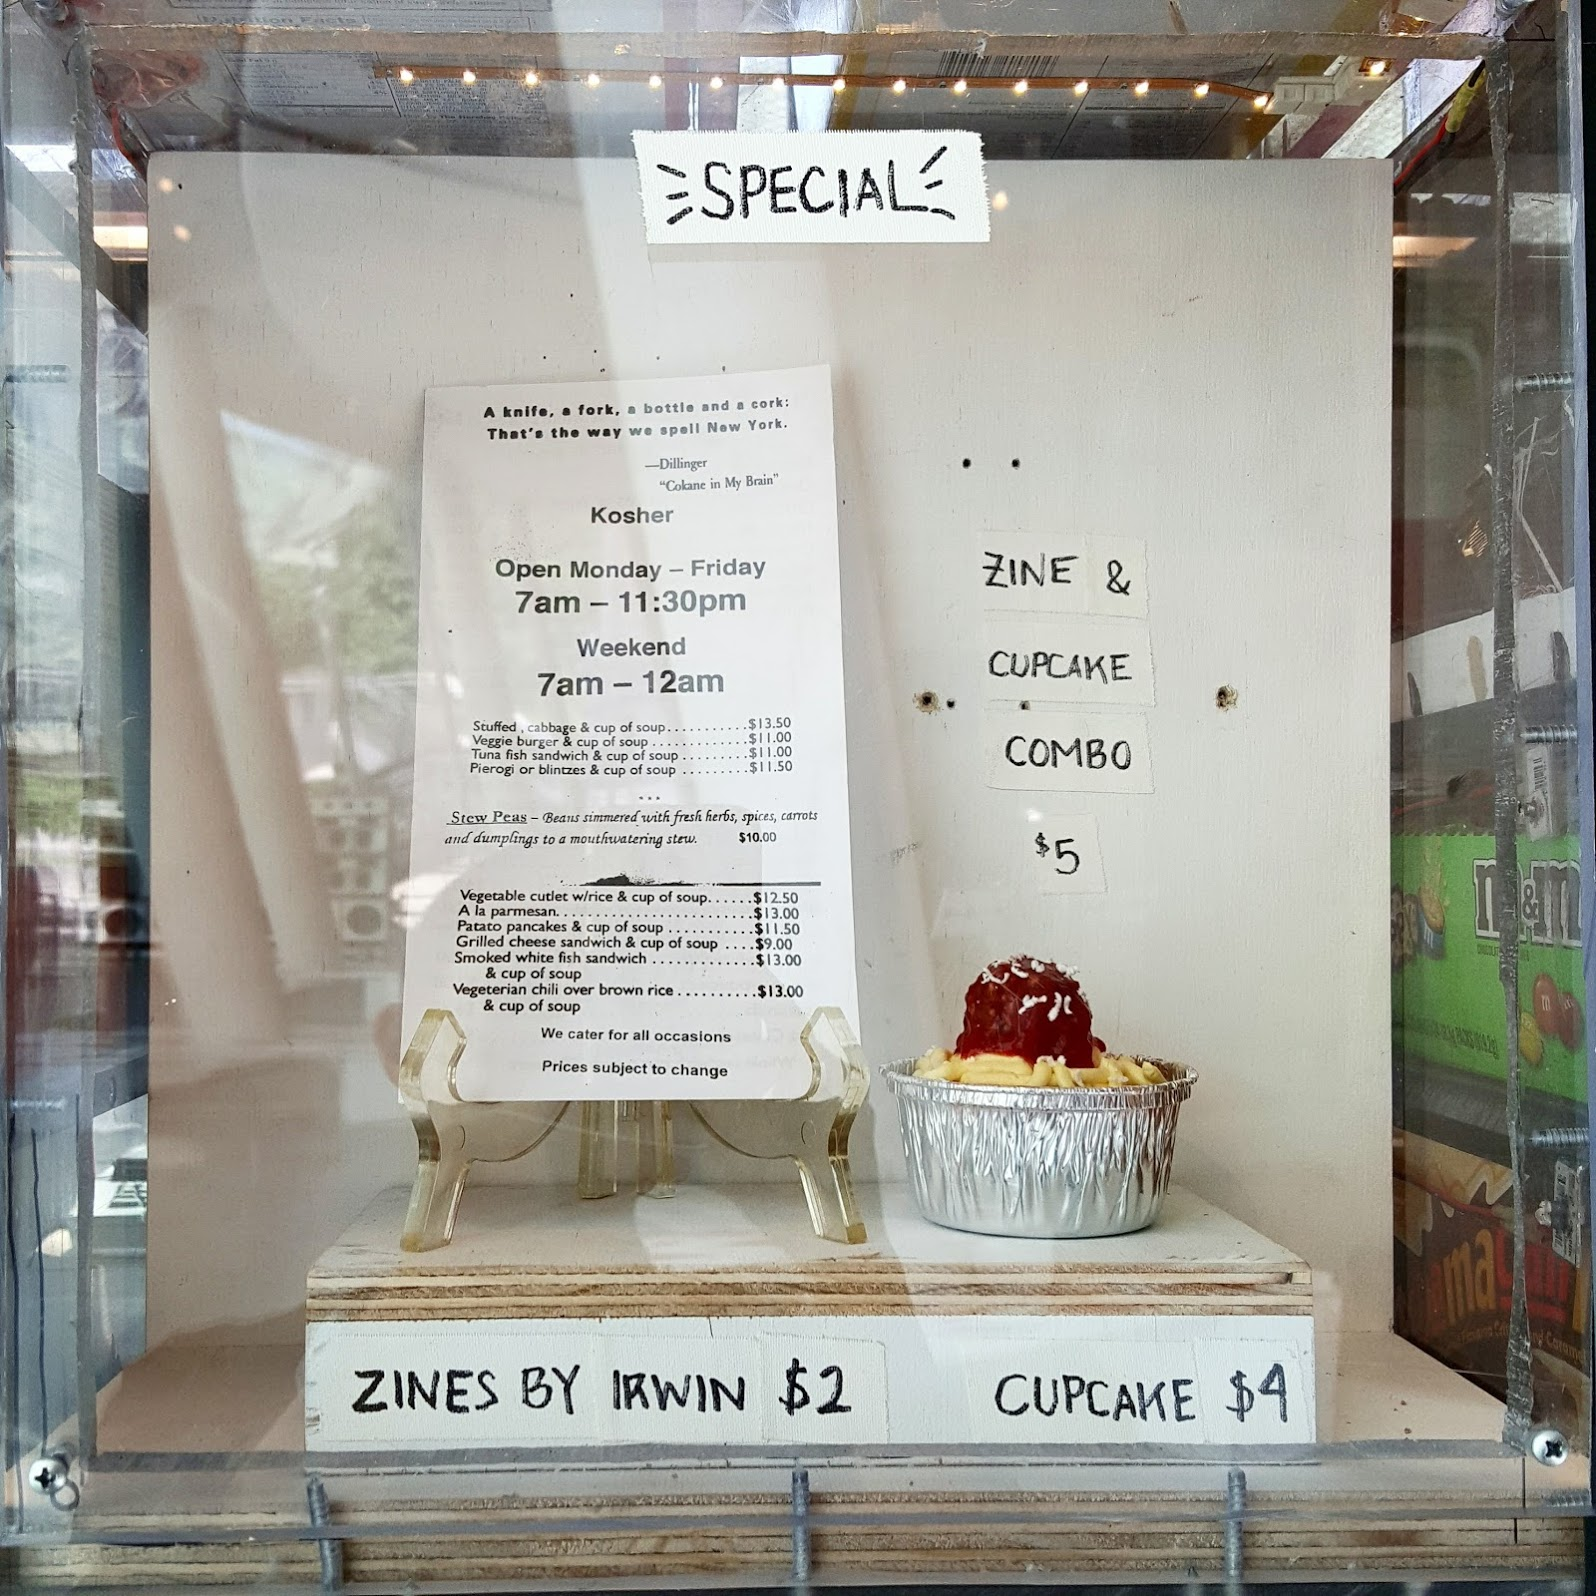 Nutrition Facts
SPECIAL
A knife, a fork, a bottle and a cork:
That's the way we spell New York.
—Dillinger
"Cokane in My Brain"
Kosher
Open Monday – Friday
7am – 11:30pm
Weekend
7am – 12am
Stuffed , cabbage & cup of soup..........$13.50
Veggie burger & cup of soup ..........$11.00
Tuna fish sandwich & cup of soup ........$11.00
Pierogi or blintzes & cup of soup .........$11.50
...
Stew Peas – Beans simmered with fresh herbs, spices, carrots
and dumplings to a mouthwatering stew. $10.00
Vegetable cutlet w/rice & cup of soup......$12.50
A la parmesan.........................$13.00
Patato pancakes & cup of soup ...........$11.50
Grilled cheese sandwich & cup of soup ....$9.00
Smoked white fish sandwich .............$13.00
& cup of soup
Vegeterian chili over brown rice..........$13.00
& cup of soup
We cater for all occasions
Prices subject to change
ZINE &
CUPCAKE
COMBO
$5
m&m
ZINES BY IRWIN $2
CUPCAKE $4